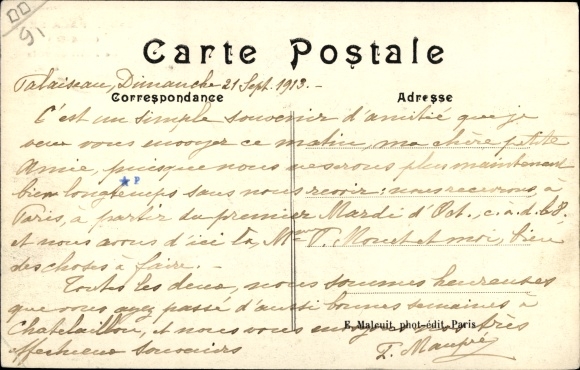 DD
91
Carte Postale
Palaiseau, Dimanche 21 Sept. 1913.-
Correspondance
Adresse
C'est un simple souvenir d'amitié que je
veux vous envoyer ce matin, ma chère petite
Amie, puisque nous ne serons plus maintenant
bien longtemps sans nous revoir: nous recevrons, à
Paris, à partir du premier Mardi d'Oct., c.à.d. le 8,
et nous avons d'ici là, Mme T. Mouet et moi, bien
des choses à faire.-
Toutes les deux, nous sommes heureuses
que vous ayez passé d'aussi bonnes semaines à
Chatelaillon, et nous vous envoyons nos très
E. Maleuit, phot-édit, Paris
affectueux souvenirs